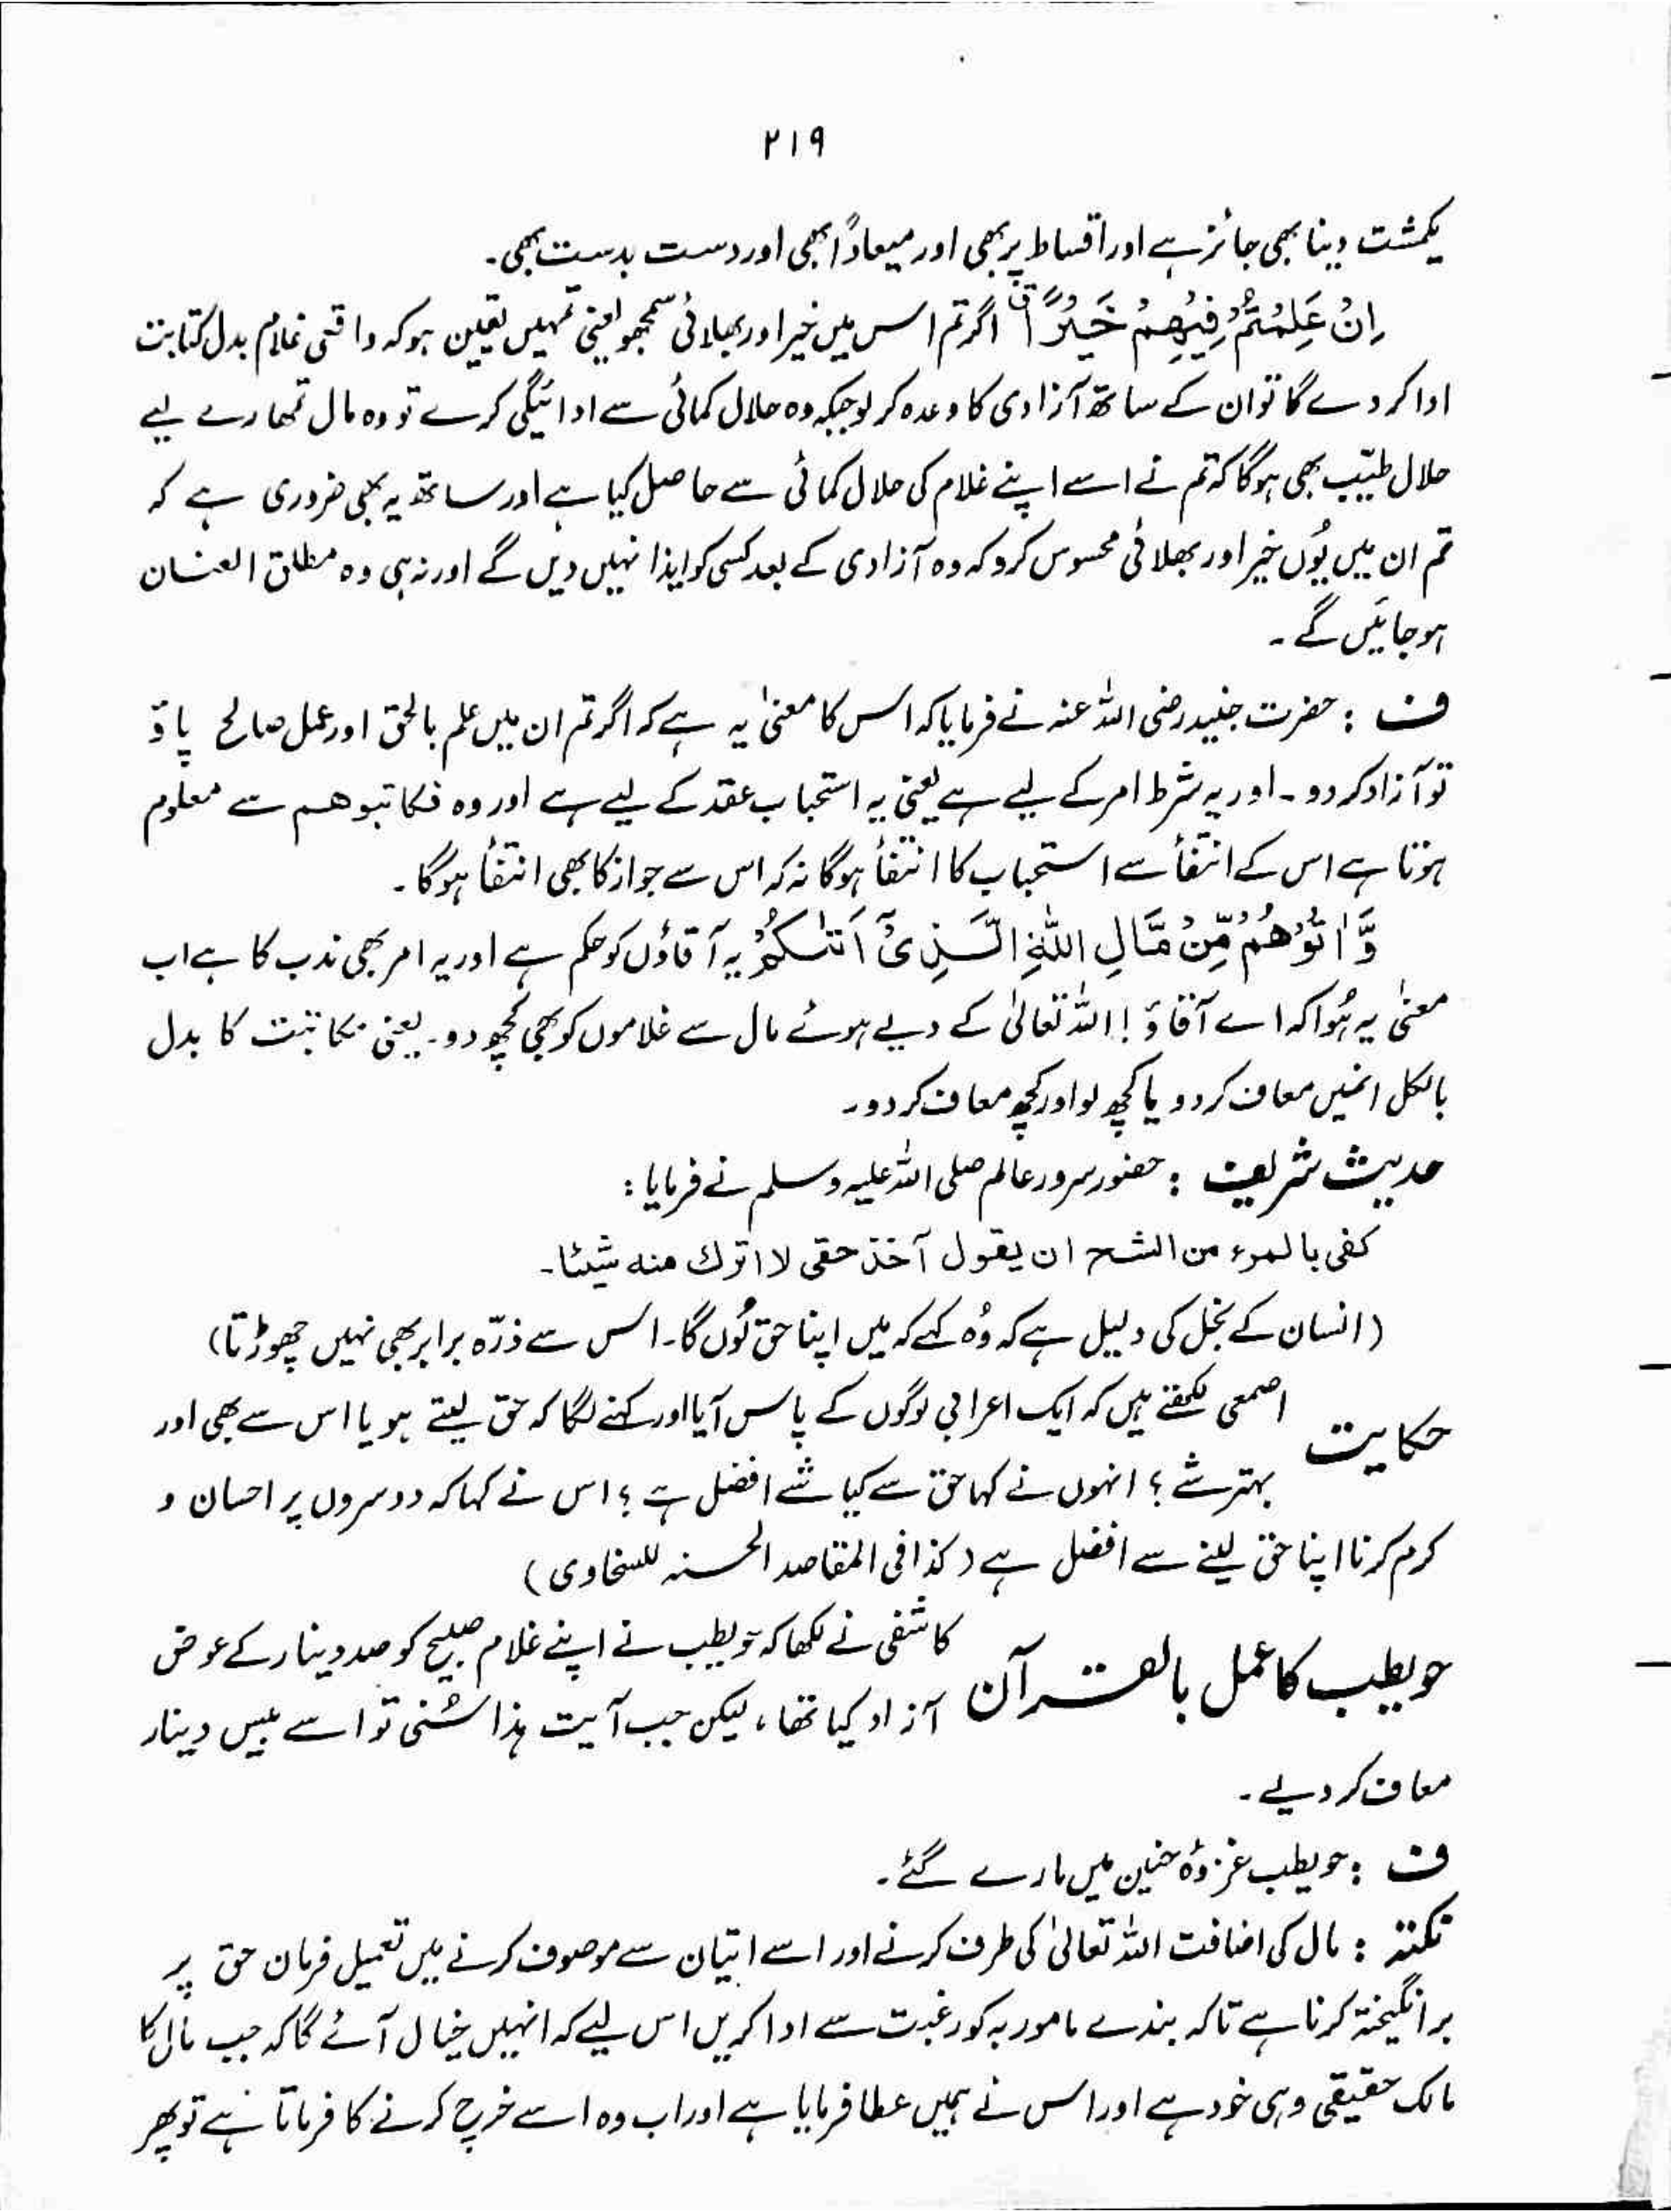 ۲۱۹
یکمشت دینا بھی جائز ہے اور اقساط پر بھی اور میعادًا بھی اور دست بدست بھی۔
اِنْ عَلِمْتُمْ فِیْهِمْ خَیْرًا ۖق اگر تم اس میں خیر اور بھلائی سمجھو یعنی تمہیں یقین ہو کہ واقعی غلام بدل کتابت
ادا کر دے گا تو ان کے ساتھ آزادی کا وعدہ کر لو جبکہ وہ حلال کمائی سے ادائیگی کرے تو وہ مال تمھارے لیے
حلال طیّب بھی ہوگا کہ تم نے اسے اپنے غلام کی حلال کمائی سے حاصل کیا ہے اور ساتھ یہ بھی ضروری ہے کہ
تم ان میں یُوں خیر اور بھلائی محسوس کرو کہ وہ آزادی کے بعد کسی کو ایذا نہیں دیں گے اور نہ ہی وہ مطلق العنان
ہو جائیں گے۔
ف : حضرت جنید رضی اللہ عنہ نے فرمایا کہ اس کا معنیٰ یہ ہے کہ اگر تم ان میں علم بالحق اور عمل صالح پاؤ
تو آزاد کر دو۔ اور یہ شرط امر کے لیے ہے یعنی یہ استحباب عقد کے لیے ہے اور وہ فکاتبوهم سے معلوم
ہوتا ہے اس کے انتفأ سے استحباب کا انتفأ ہوگا نہ کہ اس سے جواز کا بھی انتفأ ہوگا۔
وَّ اٰتُوْهُمْ مِّنْ مَّالِ اللّٰهِ الَّذِیْٓ اٰتٰىكُمْ یہ آقاؤں کو حکم ہے اور یہ امر بھی ندب کا ہے اب
معنیٰ یہ ہُوا کہ اے آقاؤ ! اللہ تعالیٰ کے دیے ہوئے مال سے غلاموں کو بھی کچھ دو۔ یعنی مکاتبت کا بدل
بالکل انھیں معاف کر دو یا کچھ لو اور کچھ معاف کر دو۔
حدیث شریف : حضور سرور عالم صلی اللہ علیہ وسلم نے فرمایا :
کفی بالمرء من الشح ان یقول آخذ حقی لا اترك منه شیئا۔
(انسان کے بخل کی دلیل ہے کہ وُہ کہے کہ میں اپنا حق لُوں گا۔ اس سے ذرّہ برابر بھی نہیں چھوڑتا)
حکایت اصمعی لکھتے ہیں کہ ایک اعرابی لوگوں کے پاس آیا اور کہنے لگا کہ حق لیتے ہو یا اس سے بھی اور
بہتر شے ؟ انہوں نے کہا حق سے کیا شے افضل ہے ؟ اس نے کہا کہ دوسروں پر احسان و
کرم کرنا اپنا حق لینے سے افضل ہے (کذا فی المقاصد الحسنہ للسخاوی)
حویطب کا عمل بالقرآن کاشفی نے لکھا کہ حویطب نے اپنے غلام صبیح کو صد دینار کے عوض
آزاد کیا تھا، لیکن جب آیت ہذا سُنی تو اسے بیس دینار
معاف کر دیے۔
ف : حویطب غزوۂ حنین میں مارے گئے۔
نکتہ : مال کی اضافت اللہ تعالیٰ کی طرف کرنے اور اسے ایتیان سے موصوف کرنے میں تعمیل فرمان حق پر
برانگیختہ کرنا ہے تاکہ بندے مامور بہ کو رغبت سے ادا کریں اس لیے کہ انہیں خیال آئے گا کہ جب مال کا
مالک حقیقی وہی خود ہے اور اس نے ہمیں عطا فرمایا ہے اور اب وہ اسے خرچ کرنے کا فرماتا ہے تو پھر